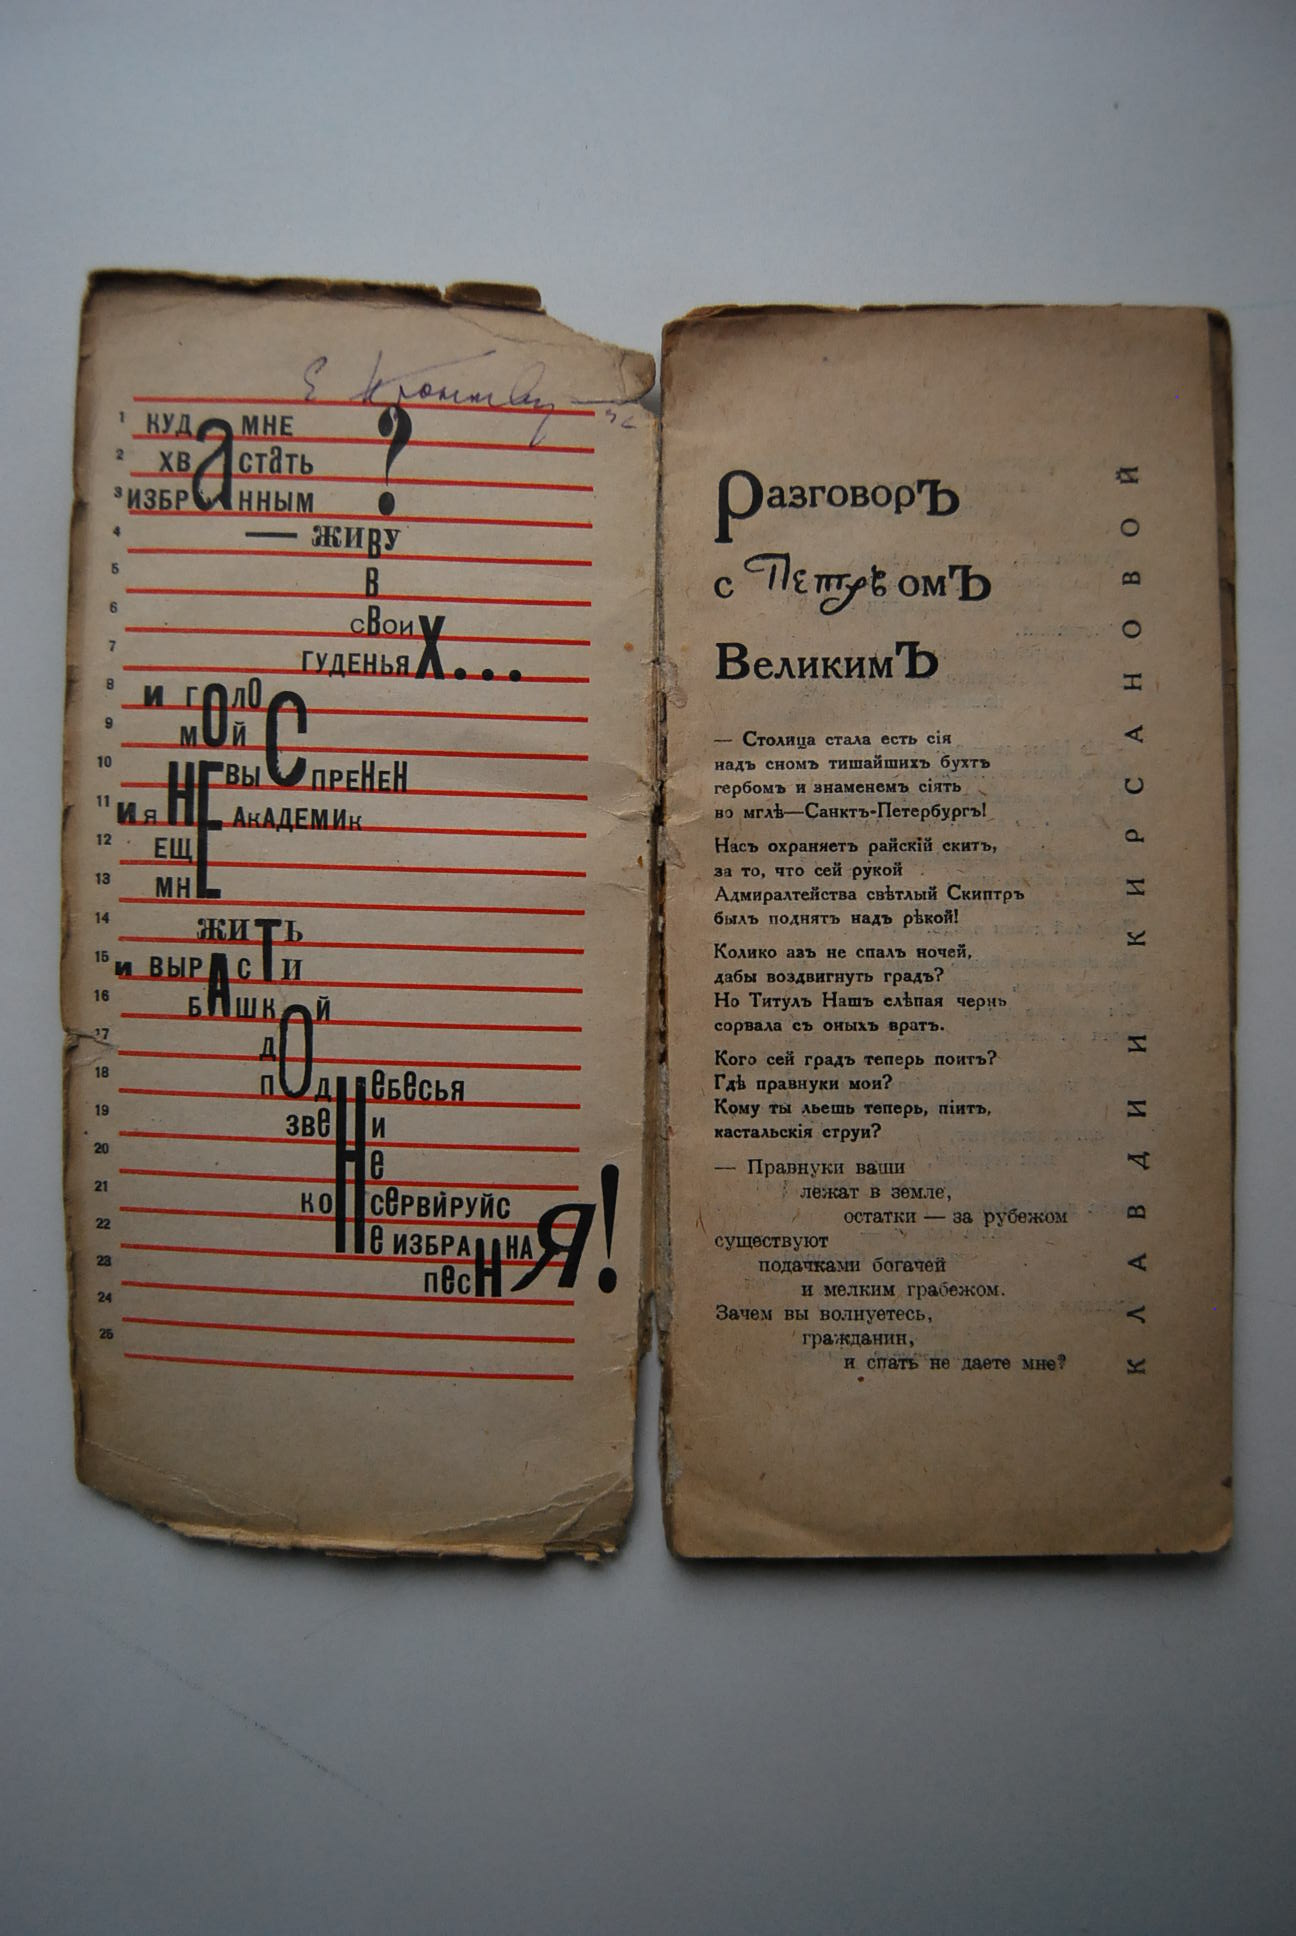 1 КУДа МНЕ ?
2 ХВаСТаТЬ
3 ИЗБРаННЫМ
4 — ЖИВУ
5 В
6 сВои
7 ГУДЕНЬЯХ...
8 И ГОЛОС
9 МОЙ
10 НЕВЫСПРЕНЕН
11 И Я НЕ АКАДЕМИК
12 ЕЩЕ
13 МНЕ
14 ЖИТЬ
15 И ВЫРАСТИ
16 БАШКОЙ
17 ДО
18 ПОДНЕБЕСЬЯ
19 ЗВЕНИ
20 НЕ
21 КОНСЕРВИРУЙСЯ
22 НЕ ИЗБРАННАЯ
23 ПЕСНЯ!
24
25
РазговорЪ
с ПетрѣомЪ
ВеликимЪ
— Столица стала есть сія
надъ сномъ тишайшихъ бухтъ
гербомъ и знаменемъ сіять
во мглѣ—Санктъ-Петербургъ!
Насъ охраняетъ райскій скитъ,
за то, что сей рукой
Адмиралтейства свѣтлый Скиптръ
былъ поднятъ надъ рѣкой!
Колико азъ не спалъ ночей,
дабы воздвигнуть градъ?
Но Титулъ Нашъ слѣпая чернь
сорвала съ оныхъ вратъ.
Кого сей градъ теперь поитъ?
Гдѣ правнуки мои?
Кому ты льешь теперь, піитъ,
кастальскія струи?
— Правнуки ваши
лежат в земле,
остатки — за рубежом
существуют
подачками богачей
и мелким грабежом.
Зачем вы волнуетесь,
гражданин,
и спать не даете мне?
КЛАВДИИ КИРСАНОВОЙ